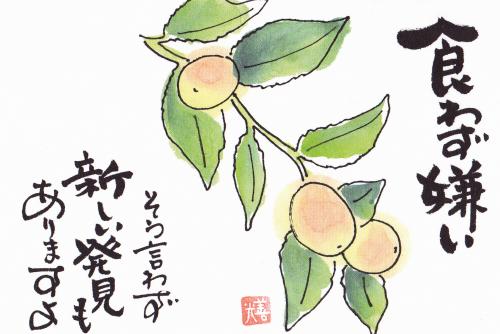 食わず嫌い
そう言わず
新しい発見も
ありますよ